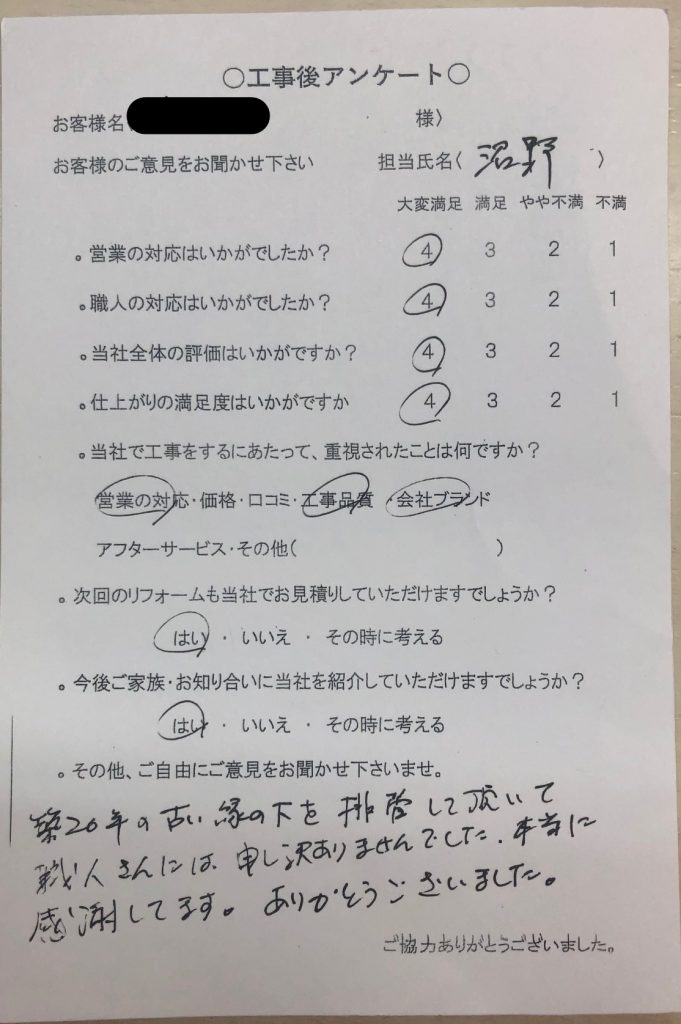 ○工事後アンケート○
お客様名 様)
お客様のご意見をお聞かせ下さい 担当氏名( 沼野 )
大変満足 満足 やや不満 不満
。営業の対応はいかがでしたか？ 4 3 2 1
。職人の対応はいかがでしたか？ 4 3 2 1
。当社全体の評価はいかがですか？ 4 3 2 1
。仕上がりの満足度はいかがですか 4 3 2 1
。当社で工事をするにあたって、重視されたことは何ですか？
営業の対応・価格・口コミ・工事品質 ・会社ブランド
アフターサービス・その他( )
。次回のリフォームも当社でお見積りしていただけますでしょうか？
はい ・ いいえ ・ その時に考える
。今後ご家族・お知り合いに当社を紹介していただけますでしょうか？
はい ・ いいえ ・ その時に考える
。その他、ご自由にご意見をお聞かせ下さいませ。
築20年の古い縁の下を 排管して頂いて
職人さんには、申し訳ありませんでした、本当に
感謝してます。ありがとうございました。
ご協力ありがとうございました。